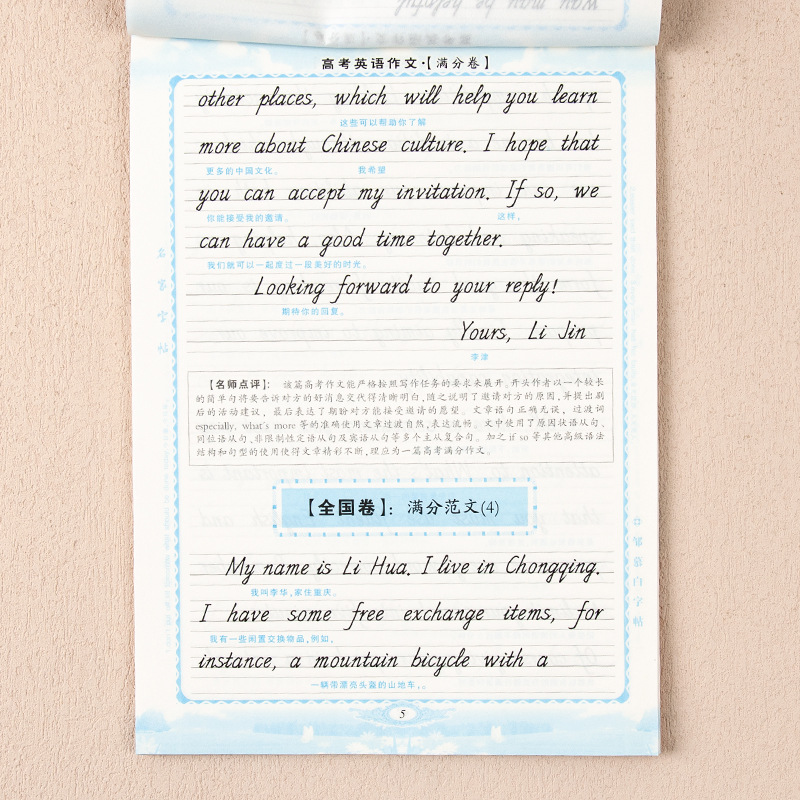 way may be helpful
高考英语作文·【满分卷】
other places, which will help you learn
这些可以帮助你了解
more about Chinese culture. I hope that
更多的中国文化。 我希望
you can accept my invitation. If so, we
你能接受我的邀请。 这样，
can have a good time together.
我们就可以一起度过一段美好的时光。
Looking forward to your reply!
期待你的回复。
Yours, Li Jin
李津
【名师点评】： 该篇高考作文能严格按照写作任务的要求来展开。开头作者以一个较长
的简单句将要告诉对方的好消息交代得清晰明白，随之说明了邀请对方的原因，并提出到
后的活动建议，最后表达了期盼对方能接受邀请的愿望。文章语句正确无误，过渡词
especially, what's more 等的准确使用文章过渡自然，表达流畅。文中使用了原因状语从句、
同位语从句、非限制性定语从句及宾语从句等多个主从复合句。加之 if so 等其他高级语法
结构和句型的使用使得文章精彩不断，理应为一篇高考满分作文。
【全国卷】：满分范文(4)
My name is Li Hua. I live in Chongqing.
我叫李华，家住重庆。
I have some free exchange items, for
我有一些闲置交换物品，例如，
instance, a mountain bicycle with a
一辆带漂亮头盔的山地车，。
5
名家字帖
邹慕白字帖